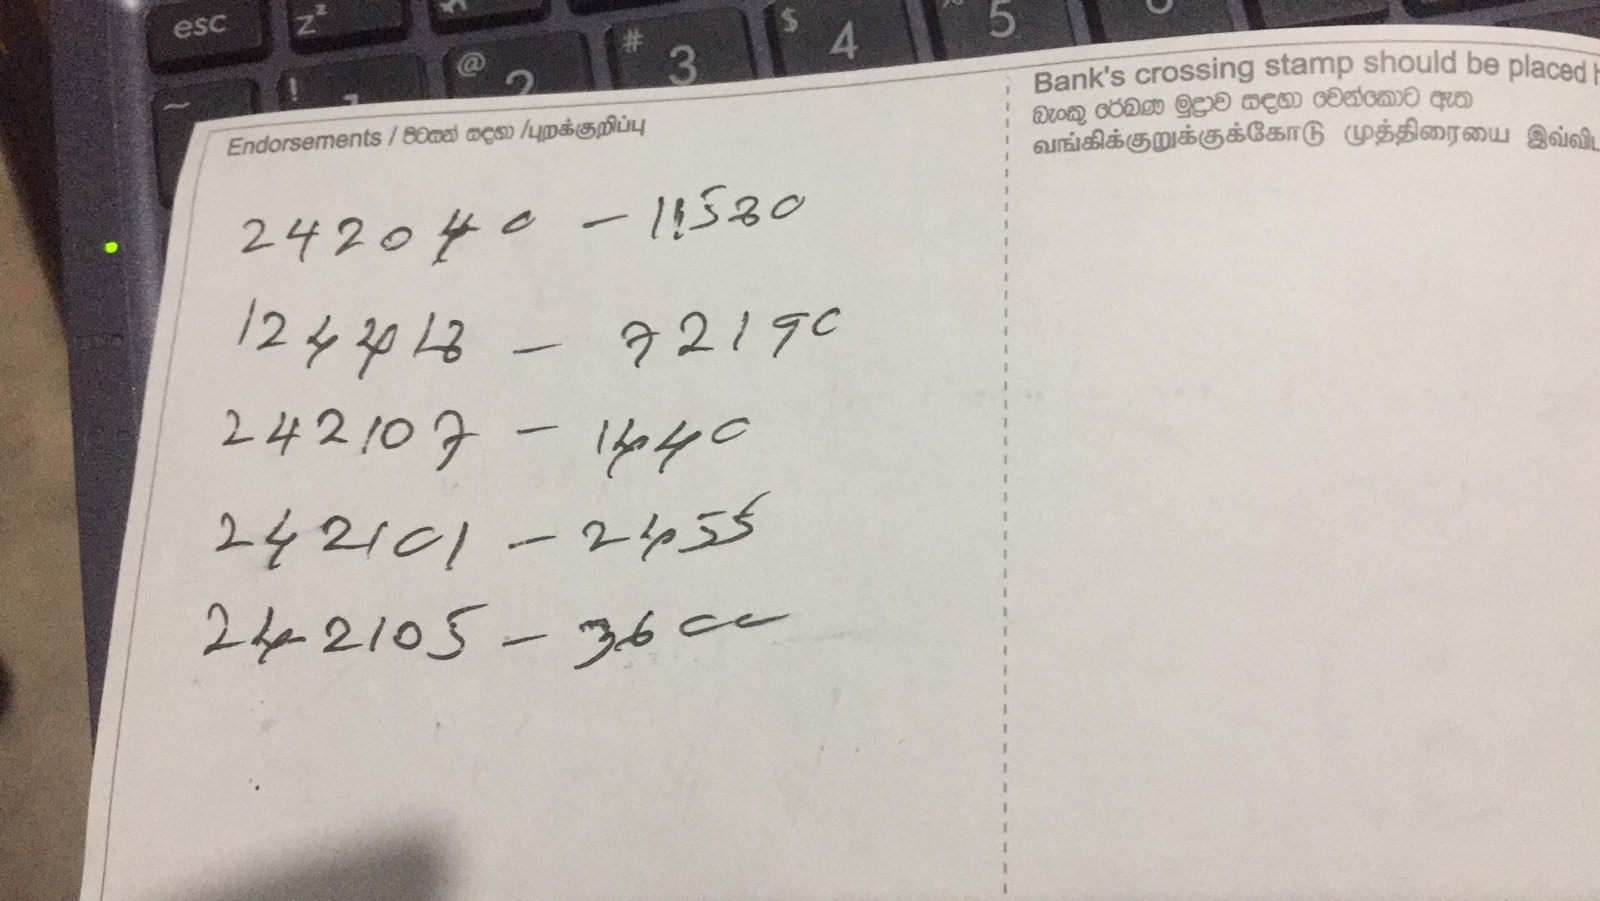 esc z² @ 2 # 3 $ 4 5
~ ! 1
Endorsements / පිටසන් සඳහා /புறக்குறிப்பு
Bank's crossing stamp should be placed
බැංකු රේඛණ මුද්‍රාව සඳහා වෙන්කොට ඇත
வங்கிக்குறுக்குக்கோடு முத்திரையை இவ்விட
242040 - 11530
124418 - 72190
242107 - 1440
242101 - 2455
242105 - 3600